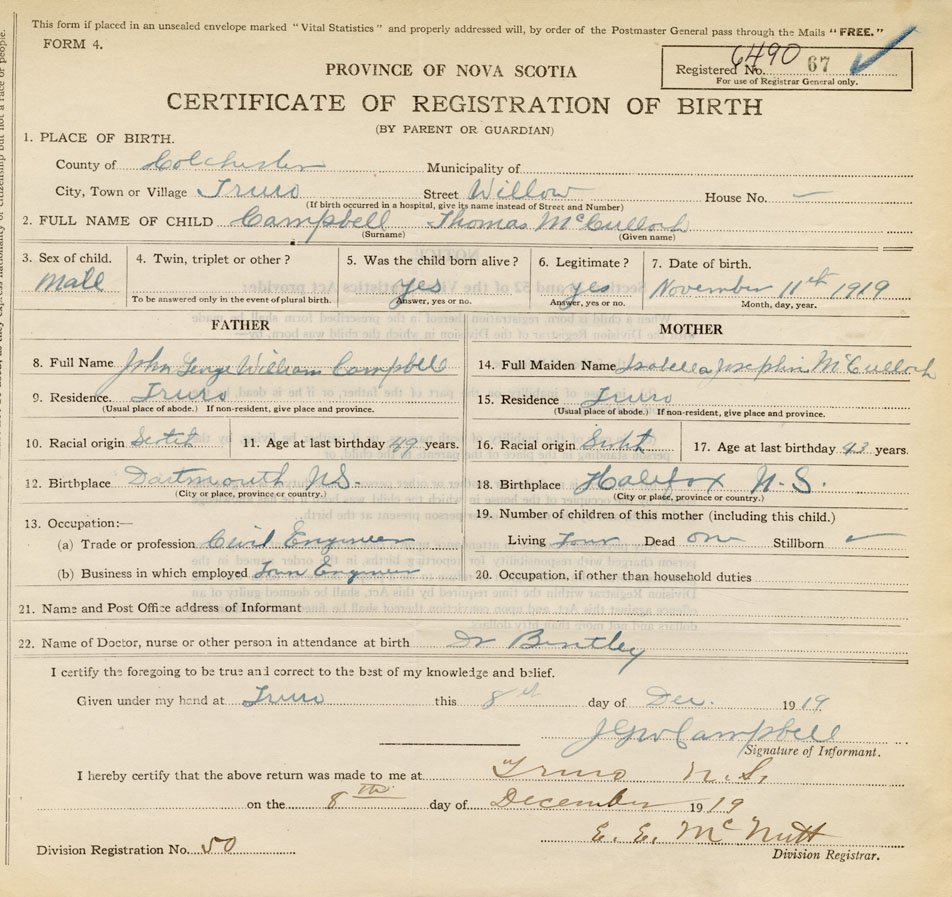 This form if placed in an unsealed envelope marked "Vital Statistics" and properly addressed will, by order of the Postmaster General pass through the Mails "FREE."
FORM 4.
Registered No. 6490 67
For use of Registrar General only.
PROVINCE OF NOVA SCOTIA
CERTIFICATE OF REGISTRATION OF BIRTH
(BY PARENT OR GUARDIAN)
1. PLACE OF BIRTH.
County of Colchester Municipality of
City, Town or Village Truro Street Willow House No. —
(If birth occurred in a hospital, give its name instead of Street and Number)
2. FULL NAME OF CHILD Campbell Thomas McCulloch
(Surname) (Given name)
3. Sex of child. 4. Twin, triplet or other? 5. Was the child born alive? 6. Legitimate? 7. Date of birth.
Male yes yes November 11th 1919
To be answered only in the event of plural birth. Answer, yes or no. Answer, yes or no. Month, day, year.
FATHER MOTHER
8. Full Name John George William Campbell 14. Full Maiden Name Isabella Josephin McCulloch
9. Residence. Truro 15. Residence Truro
(Usual place of abode.) If non-resident, give place and province. (Usual place of abode.) If non-resident, give place and province.
10. Racial origin Scotch 11. Age at last birthday 49 years. 16. Racial origin Scotch 17. Age at last birthday years.
12. Birthplace Dartmouth N.S. 18. Birthplace Halifax N.S.
(City or place, province or country.) (City or place, province or country.)
13. Occupation:— 19. Number of children of this mother (including this child.)
(a) Trade or profession Civil Engineer Living Four Dead one Stillborn —
(b) Business in which employed Town Engineer 20. Occupation, if other than household duties
21. Name and Post Office address of Informant
22. Name of Doctor, nurse or other person in attendance at birth Dr Bentley
I certify the foregoing to be true and correct to the best of my knowledge and belief.
Given under my hand at Truro this 8th day of Dec. 1919
JGW Campbell
Signature of Informant.
I hereby certify that the above return was made to me at Truro N.S.
on the 8th day of December 1919
E. E. McNutt
Division Registration No. 50 Division Registrar.